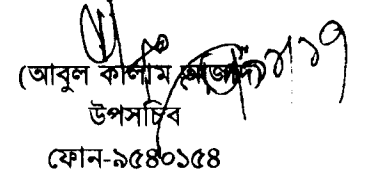 (আবুল কালাম আজাদ)
উপসচিব
ফোন-৯৫৪০১৫৪